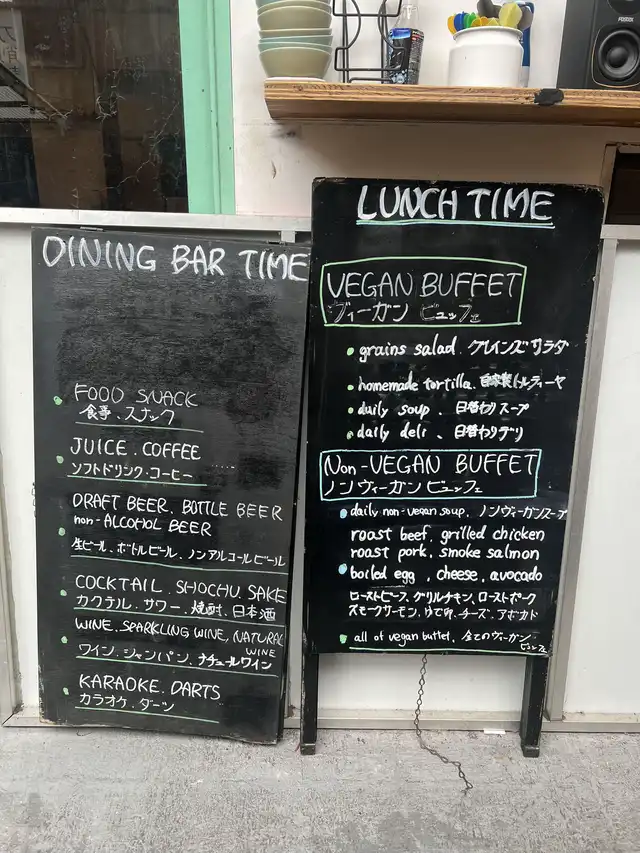 DINING BAR TIME
FOOD SNACK
食事、スナック
JUICE. COFFEE
ソフトドリンク・コーヒー
DRAFT BEER. BOTTLE BEER
non-ALCOHOL BEER
生ビール、ボトルビール、ノンアルコールビール
COCKTAIL. SHOCHU. SAKE
カクテル、サワー、焼酎、日本酒
WINE. SPARKLING WINE, NATURAL
WINE
ワイン、シャンパン、ナチュールワイン
KARAOKE. DARTS
カラオケ、ダーツ
LUNCH TIME
VEGAN BUFFET
ヴィーガン ビュッフェ
grains salad. グレインズサラダ
homemade tortilla. 自家製トルティーヤ
daily soup、日替わりスープ
daily deli、日替わりデリ
Non-VEGAN BUFFET
ノンヴィーガンビュッフェ
daily non-vegan soup, ノンヴィーガンスープ
roast beef, grilled chicken
roast pork, smoke salmon
boiled egg, cheese, avocado
ローストビーフ、グリルチキン、ローストポーク
スモークサーモン、ゆで卵、チーズ、アボカド
all of vegan buffet, 全てのヴィーガン
ビュッフェ